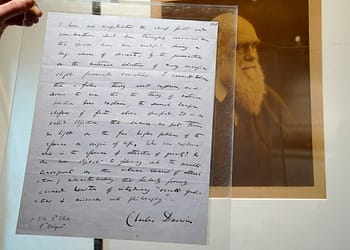 I have now recapitulated the chief facts and
considerations which have thoroughly convinced me
that species have been modified, during a
long course of descent, by the preservation
or the natural selection of many successive
slight favourable variations. I cannot believe
that a false theory would explain as it
seems to me that the theory of natural
selection does explain, the several large
classes of facts above specified. It is no
valid objection that science as yet throws
no light on the far higher problem of the
essence or origin of life. Who can explain
what is the essence of attraction of gravity? No
one now objects to following out the results
consequent on this unknown element of attraction;
notwithstanding that Leibnitz formerly
accused Newton of introducing "occult qualities
& miracles into philosophy".
Charles Darwin